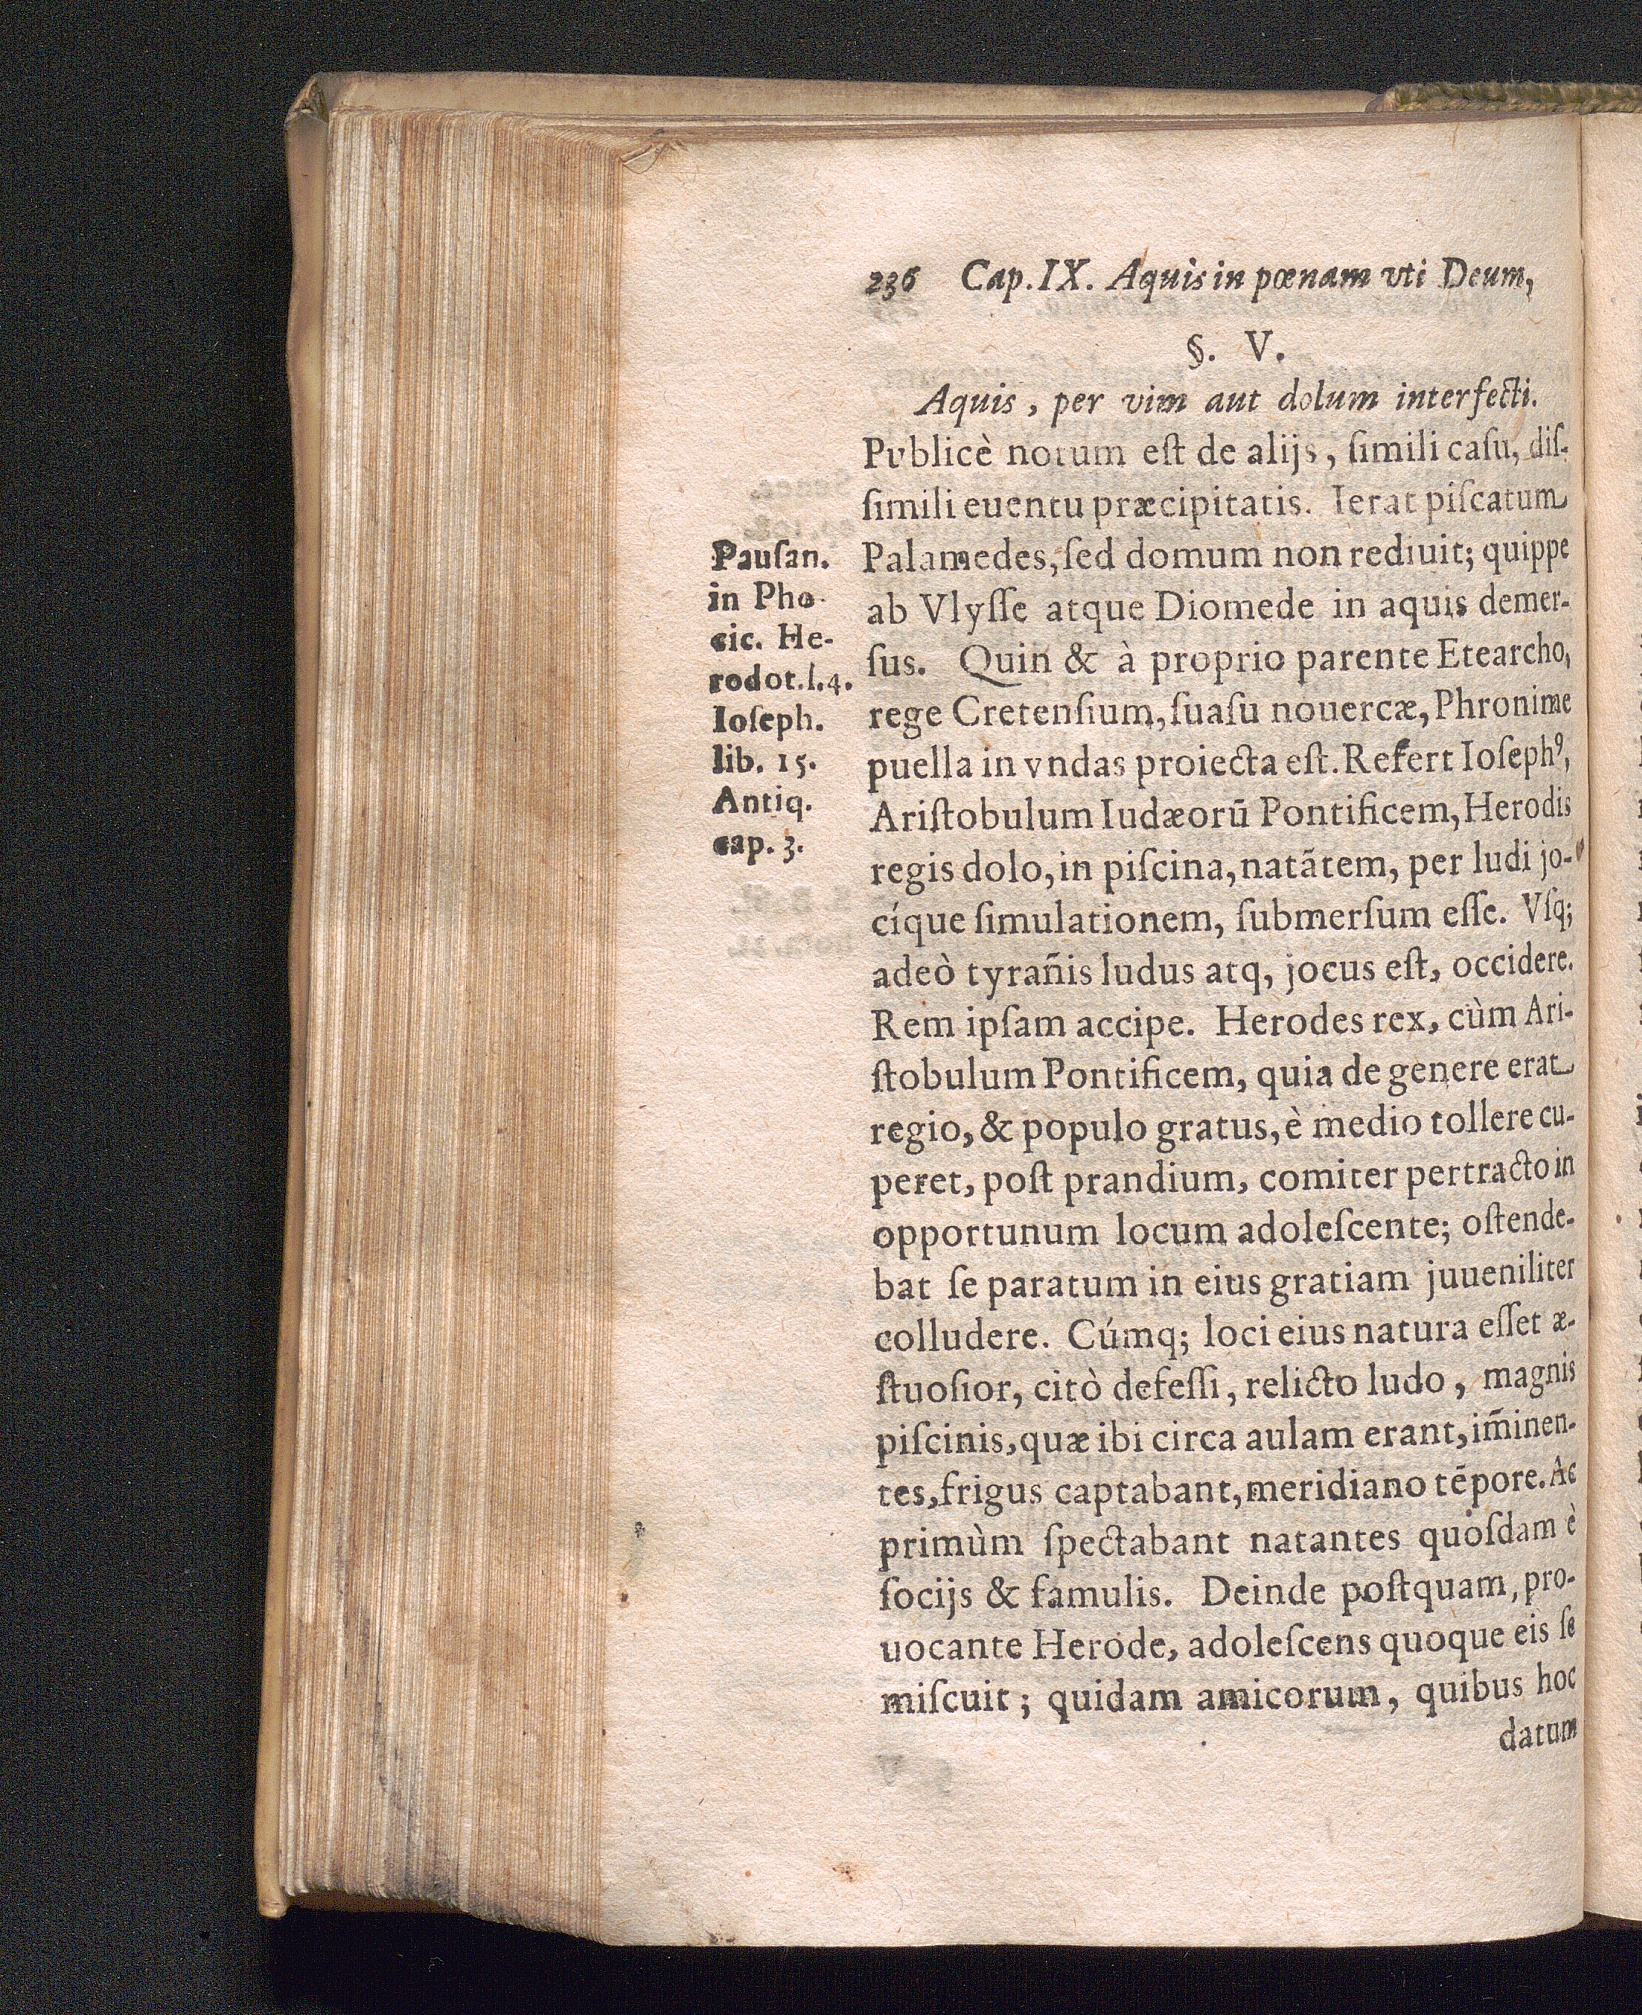 236 Cap. IX. Aquis in pœnam vti Deum,
§. V.
Aquis, per vim aut dolum interfecti.
Pvblicè notum est de alijs, ſimili caſu, diſ-
ſimili euentu præcipitatis. Ierat piſcatum
Palamedes, ſed domum non rediuit; quippe
ab Vlyſſe atque Diomede in aquis demer-
ſus. Quin & à proprio parente Etearcho,
rege Cretenſium, ſuaſu nouercæ, Phronime
puella in vndas proiecta eſt. Refert Ioſephꝰ,
Ariſtobulum Iudæorū Pontificem, Herodis
regis dolo, in piſcina, natãtem, per ludi jo-
cíque ſimulationem, ſubmerſum eſſe. Vſq;
adeò tyrañis ludus atq, jocus eſt, occidere.
Rem ipſam accipe. Herodes rex, cùm Ari-
ſtobulum Pontificem, quia de genere erat
regio, & populo gratus, è medio tollere cu-
peret, poſt prandium, comiter pertracto in
opportunum locum adoleſcente; oſtende-
bat ſe paratum in eius gratiam juueniliter
colludere. Cúmq; loci eius natura eſſet æ-
ſtuoſior, citò defeſſi, relicto ludo, magnis
piſcinis, quæ ibi circa aulam erant, im̃inen-
tes, frigus captabant, meridiano tẽpore. Ac
primùm ſpectabant natantes quoſdam è
ſocijs & famulis. Deinde poſtquam, pro-
uocante Herode, adoleſcens quoque eis ſe
miſcuit; quidam amicorum, quibus hoc
datum
Pauſan.
in Pho-
cic. He-
rodot. l. 4.
Ioſeph.
lib. 15.
Antiq.
cap. 3.